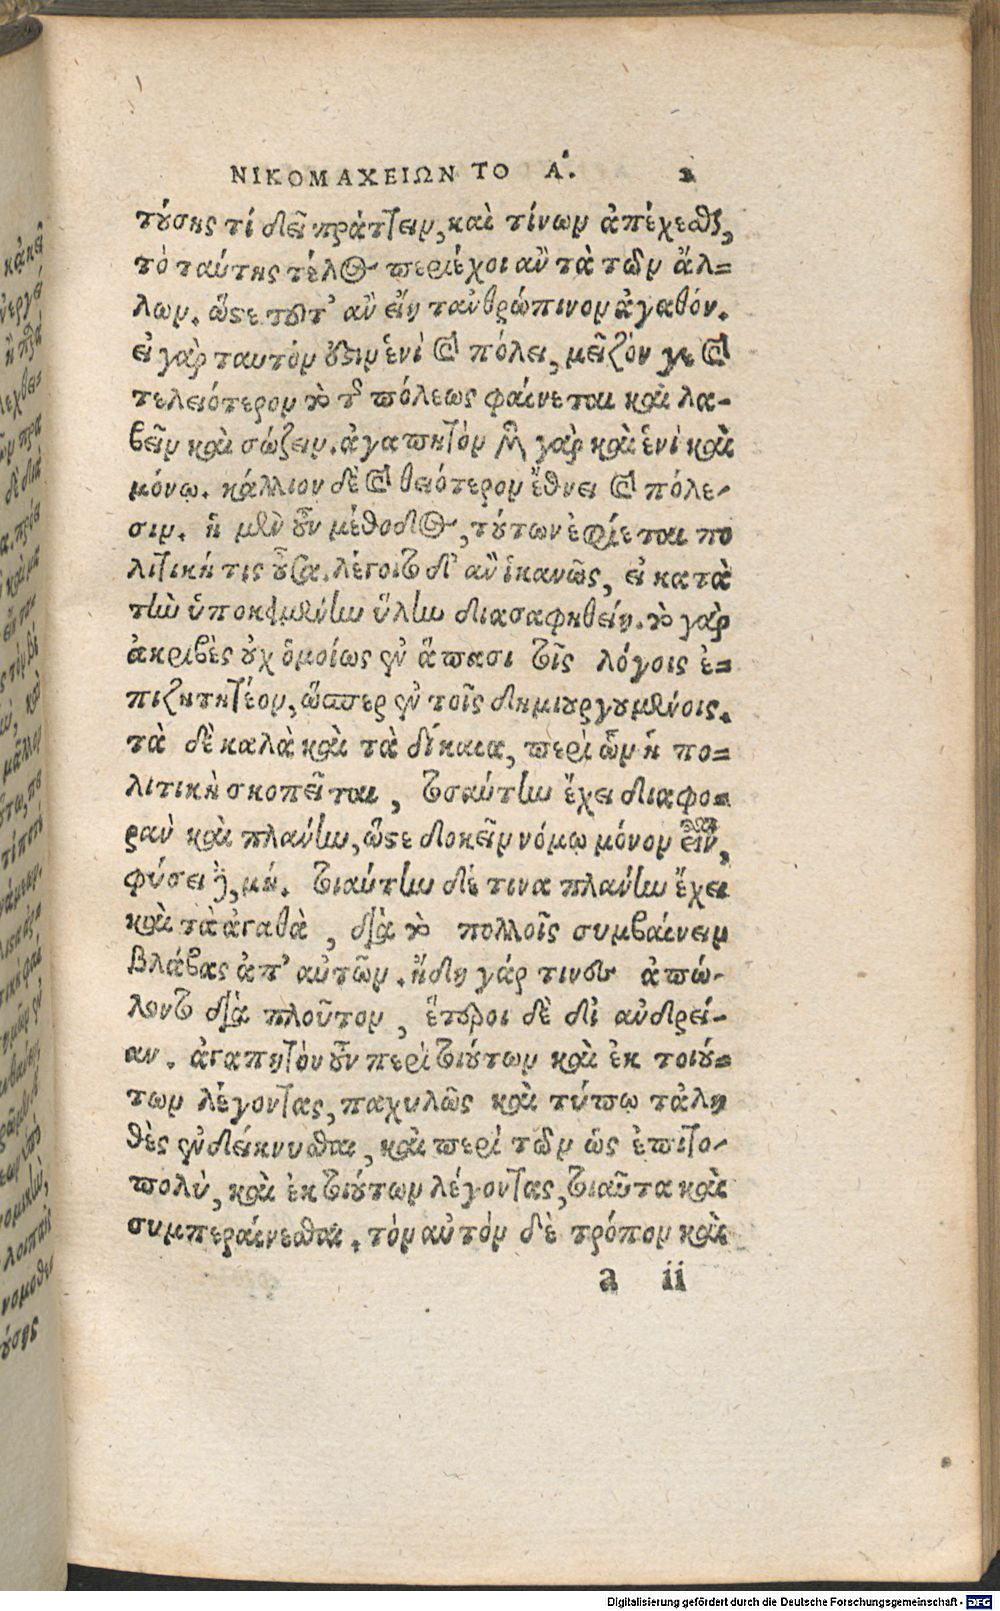 ΝΙΚΟΜΑΧΕΙΩΝ ΤΟ Α. 2
τούσης τί δεῖ πράττειν, καὶ τίνων ἀπέχεσθαι,
τὸ ταύτης τέλος περιέχοι ἂν τὰ τῶν ἄλ-
λων. ὥστε τοῦτ' ἂν εἴη τἀνθρώπινον ἀγαθόν.
εἰ γὰρ ταυτόν ἐστιν ἑνὶ καὶ πόλει, μεῖζόν γε καὶ
τελειότερον τὸ τῆς πόλεως φαίνεται καὶ λα-
βεῖν καὶ σώζειν. ἀγαπητὸν μὲν γὰρ καὶ ἑνὶ καὶ
μόνῳ. κάλλιον δὲ καὶ θειότερον ἔθνει καὶ πόλε-
σιν. ἡ μὲν οὖν μέθοδος, τούτων ἐφίεται πο
λιτική τις οὖσα. λέγοιτο δ' ἂν ἱκανῶς, εἰ κατὰ
τὴν ὑποκειμένην ὕλην διασαφηθείη. τὸ γὰρ
ἀκριβὲς οὐχ ὁμοίως ἐν ἅπασι τοῖς λόγοις ἐ-
πιζητητέον, ὥσπερ ἐν τοῖς δημιουργουμένοις.
τὰ δὲ καλὰ καὶ τὰ δίκαια, περὶ ὧν ἡ πο-
λιτικὴ σκοπεῖται, τοσαύτην ἔχει διαφο-
ρὰν καὶ πλάνην, ὥστε δοκεῖν νόμῳ μόνον εἶναι,
φύσει δὲ, μή. τοιαύτην δέ τινα πλάνην ἔχει
καὶ τὰ ἀγαθὰ, διὰ τὸ πολλοῖς συμβαίνειν
βλάβας ἀπ' αὐτῶν. ἤδη γάρ τινες ἀπώ-
λοντο διὰ πλοῦτον, ἕτεροι δὲ δι' ἀνδρεί-
αν. ἀγαπητὸν οὖν περὶ τοιούτων καὶ ἐκ τοιού-
των λέγοντας, παχυλῶς καὶ τύπῳ τἀλη
θὲς ἐνδείκνυσθαι, καὶ περὶ τῶν ὡς ἐπιτο-
πολὺ, καὶ ἐκ τοιούτων λέγοντας, τοιαῦτα καὶ
συμπεραίνεσθαι. τὸν αὐτὸν δὲ τρόπον καὶ
a ii
Digitalisierung gefördert durch die Deutsche Forschungsgemeinschaft - DFG